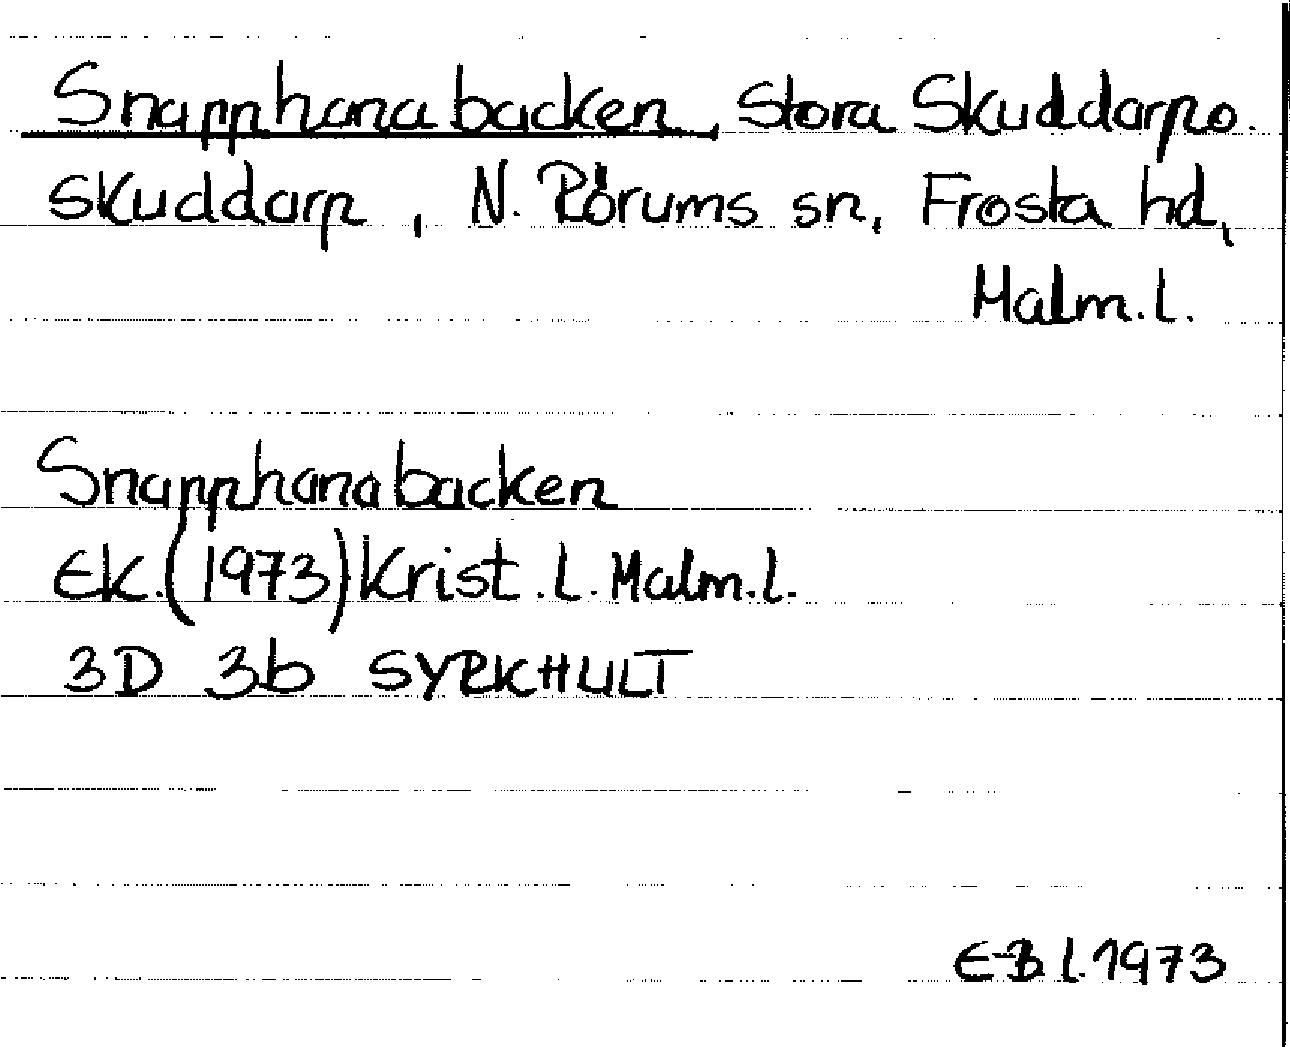 Snapphanabacken, Stora Skuddarp o.
Skuddarp, N. Rörums sn, Frosta hd,
Malm.l.
Snapphanabacken
Ek.(1973)Krist.l. Malm.l.
3D 3b SYRKHULT
E-B l. 1973